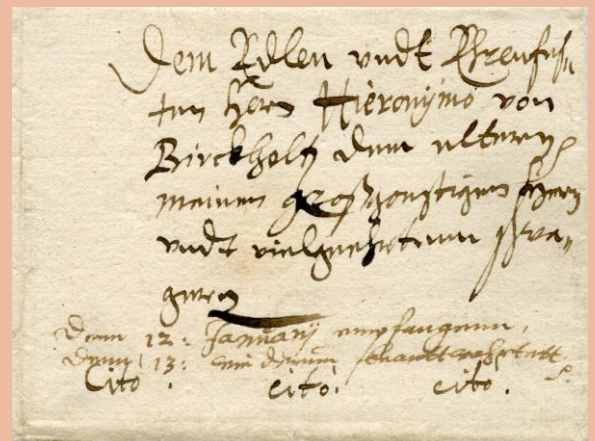 Dem Edlen vndt Ehrenfes„
ten Hern Hieronÿmo von
Birckholtz dem eltern
meinem großgonstigen Hern
vndt vielgeehrtenn Schwa„
gern
Denn 12: Januarÿ empfangenn,
Denn 13: wie derum
Cito. cito. cito.